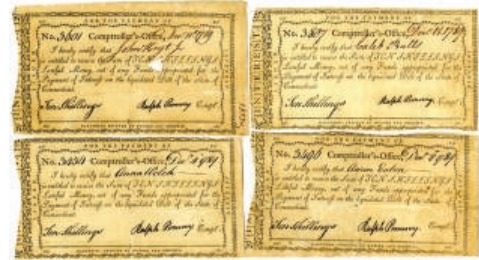 FOR THE PAYMENT OF
No. Comptroller's-Office, 1789
I hereby certify that John Hoyt Jr
is entitled to receive the Sum of TEN SHILLINGS
Lawful Money, out of any Funds appropriated for the
Payment of Interest on the liquidated Debt of the State of
Connecticut.
Ten Shillings Ralph Pomeroy Compt.
FOR THE PAYMENT OF
INTEREST
No. Comptroller's-Office, Dec 1789
I hereby certify that Caleb
is entitled to receive the Sum of TEN SHILLINGS
Lawful Money, out of any Funds appropriated for the
Payment of Interest on the liquidated Debt of the State of
Connecticut.
Ten Shillings Ralph Pomeroy Compt.
FOR THE PAYMENT OF
No. Comptroller's-Office, Dec 1789
I hereby certify that Anna Welch
is entitled to receive the Sum of TEN SHILLINGS
Lawful Money, out of any Funds appropriated for the
Payment of Interest on the liquidated Debt of the State of
Connecticut.
Ten Shillings Ralph Pomeroy Compt.
FOR THE PAYMENT OF
No. Comptroller's-Office, Dec 1789
I hereby certify that
is entitled to receive the Sum of TEN SHILLINGS
Lawful Money, out of any Funds appropriated for the
Payment of Interest on the liquidated Debt of the State of
Connecticut.
Ten Shillings Ralph Pomeroy Compt.